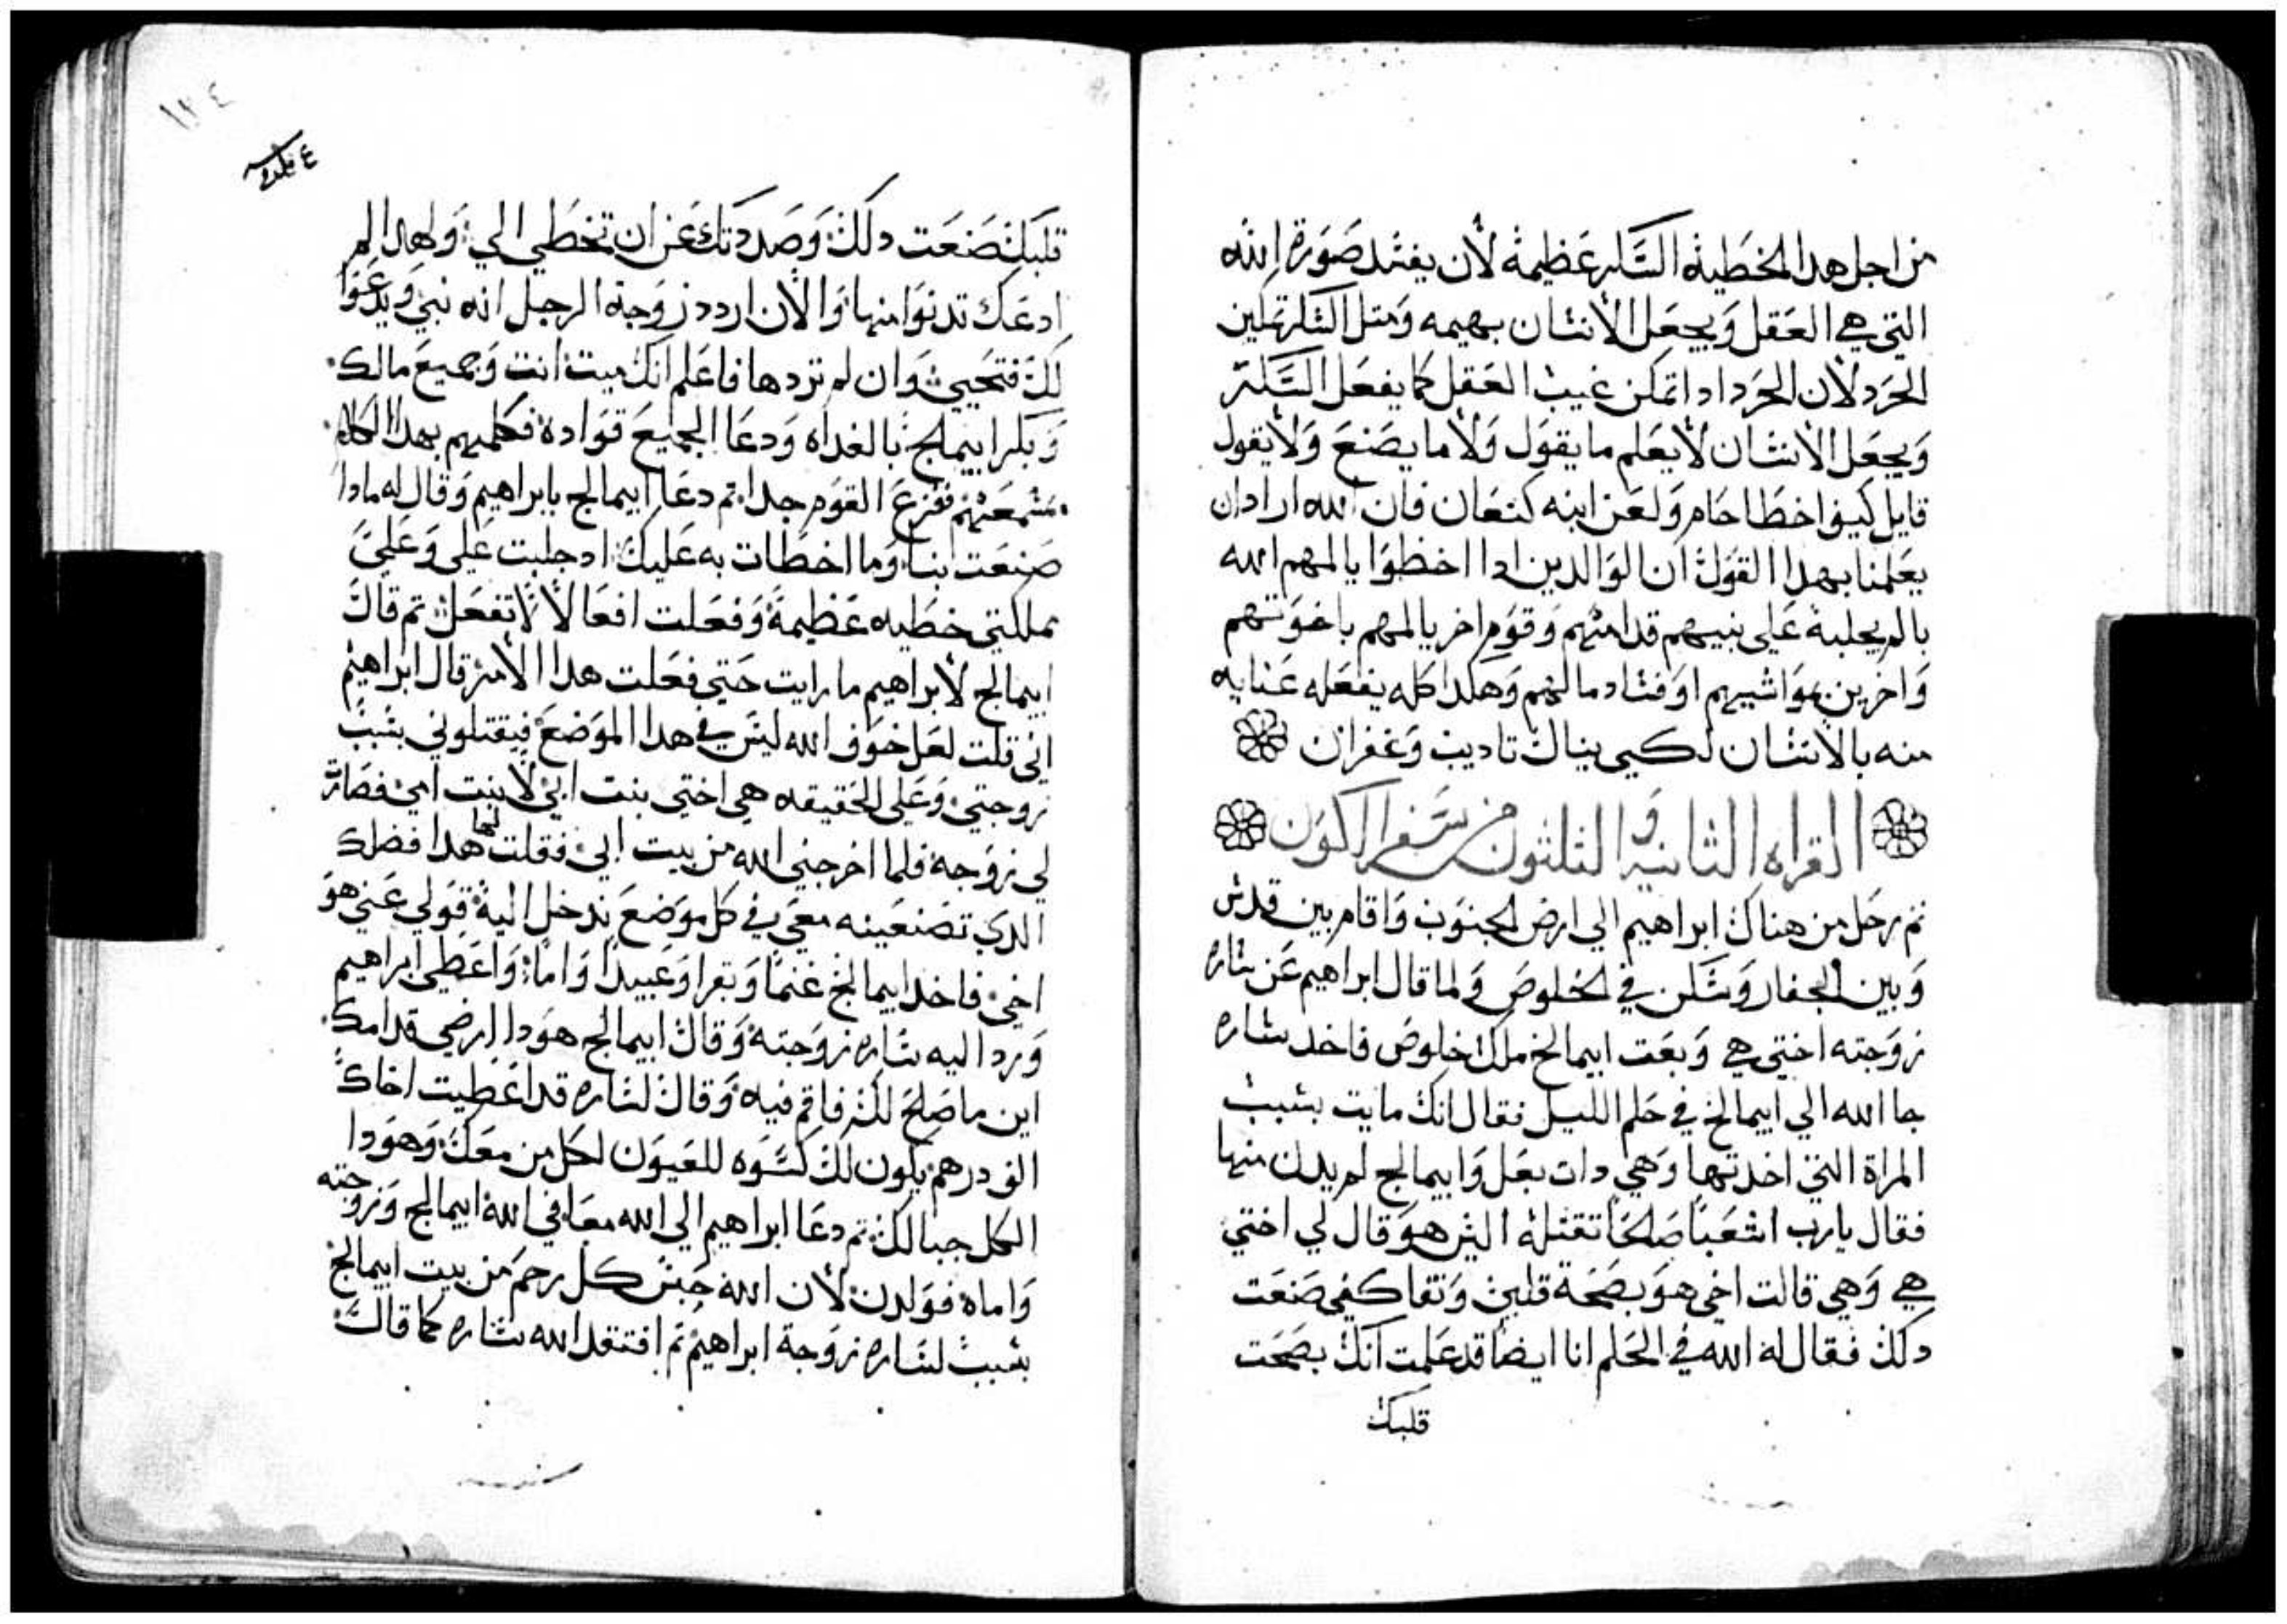 من اجل هدا الخطيه السكر عظيمة لأن يفسد صورة الله
التي هي العقل ويجعل الأنسان بهيمه ومتل السكر تمكين
الحرد لأن الحرد ادا تمكن غيب العقل كما يفعل السكر
ويجعل الانسان لأيعلم ما يقول ولأما يصنع ولأيقول
قايل كيف اخطا حام ولعن ابنه كنعان فان الله اراد ان
يعلمنا بهدا القول ان الوالدين ادا اخطوا يالمهم الله
بالم يجلبه على بنيهم قدامهم وقوم اخر يالمهم باخوتهم
واخرين بمواشيهم او فساد مالهم وهكدا كله يفعله عنايه
منه بالأنسان لكيى ينال تاديب وغفران
القراه الثانيه والثلثون من سفر الكون
تم رحل من هناك ابراهيم الي ارض الجنوب واقام بين قدس
وبين الجفار وسكن في الخلوص ولما قال ابراهيم عن ساره
زوجته اختي هي وبعت ابيمالخ ملك خلوص فاخد ساره
جا الله الي ابيمالخ في حلم الليل فقال انك مايت بسبب
المراة التي اخدتها وهي دات بعل وابيمالخ لم يدن منها
فقال يارب اشعبا صالحا تقتله اليس هو قال لي اختي
هي وهي قالت اخي هو بصحة قلبي ونقا كفي صنعت
دلك فقال له الله في الحلم انا ايضا قد علمت انك بصحت
قلبك
١٢٤
قلبك صنعت دلك وصددتك عن ان تخطي الي ولهدا لم
ادعك تدنوا منها والأن اردد زوجة الرجل انه نبي ويدعوا
لك فتحيي وان لم تردها فاعلم انك ميت انت وجميع مالك
وبكر ابيمالخ بالغداه ودعا الجميع قواده فكلمهم بهدا الكلام
مسمعهم ففزع القوم جدا تم دعا ابيمالخ بابراهيم وقال له مادا
صنعت بنا وما اخطات به عليك اد جلبت علي وعلي
مملكتي خطيه عظيمة وفعلت افعالأ لأتفعل تم قال
ابيمالخ لأبراهيم ما رايت حتي فعلت هدا الأمر قال ابراهيم
اني قلت لعل خوف الله ليس في هدا الموضع فيقتلوني بسبب
زوجتي وعلي الحقيقه هي اختي بنت ابي لأ بنت امي فصارت
لي زوجة فلما اخرجني الله من بيت ابي فقلت لها هدا فضلك
الدي تصنعينه معي في كل موضع ندخل اليه قولي عني هو
اخي فاخد ابيمالخ غنما وبقرا وعبيدا واما واعطي ابراهيم
ورد اليه ساره زوجته وقال ابيمالخ هودا ارضي قدامك
اين ما صلح لك فاقم فيه وقال لساره قد اعطيت اخاك
الف درهم يكون لك كسوه للعيون لكل من معك وهودا
الكل حبا لك تم دعا ابراهيم الي الله معافي الله ابيمالخ وزوجته
واماه فولدن لأن الله حبس كل رحم من بيت ابيمالخ
بسبب لساره زوجة ابراهيم تم افتقد الله ساره كما قال